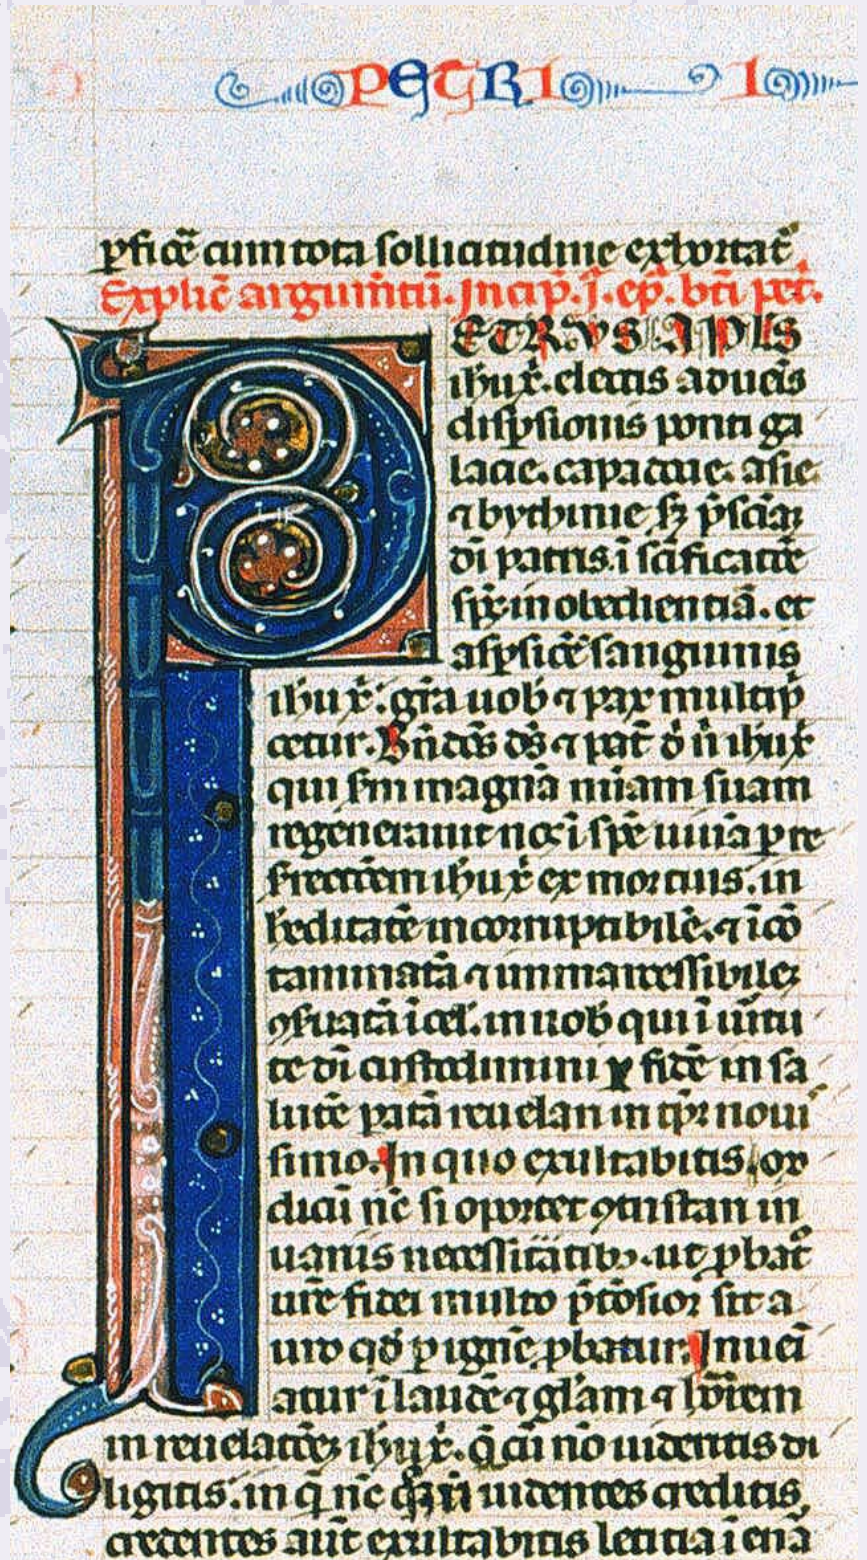 PETRI I
ꝑficẽ cum tota sollicitudine exhortat᷑
Explic̄ argum̄tū. Incip̄. j. ep̄. bt̄i pet̄.
PETRVS APLS
ihu xp̄. electis aduen̄is
disꝑsionis ponti ga
lacie. capadocie. asie
⁊ bythinie sꝫ p̄scīaꝫ
di patris. ī sc̄ificatiōe
sp̄c in obedientiā. et
aspersiōe sanguinis
ihu xp̄. gr̄a uob̄ ⁊ pax multip̄
cetur. Bn̄dc̄s ds̄ ⁊ pat̄ dn̄i n̄ ihu xp̄
qui scd̄m magnā mīam suam
regenerauit nos ī spē uiuā ꝑ re
surrectōem ihu xp̄ ex mortuis. in
hēditatē incorruptibilē. ⁊ īcō
taminatā ⁊ inmarcessibileꝫ
ꝯseruatā ī cel̄. in uob̄ qui ī uirtu
te di custodimini ꝑ fidē in sa
lutē patā reuelari in tp̄r noui
simo. In quo exultabitis. mo
dicū nc̄ si oportet ꝯtristari in
uariis necessitātibꝰ. ut ꝓbat᷑
ur̄e fidei multo p̄cōsior sit a
uro qd̄ ꝑ ignē ꝓbatur. Inueī
atur ī laudē ⁊ gl̄am ⁊ honorem
in reuelatiōeꝫ ihu xp̄. q̄ cū nō uideritis di
ligitis. in q̄ nc̄ qͦꝫ n̄ uidentes creditis
credentes aut̄ exultabitis letitia ī enā